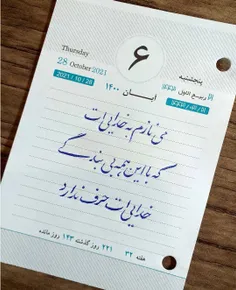 Thursday
28 October 2021
2021 / 10 / 28
۶
پنجشنبه
ربیع الاول
آبان ۱۴۰۰
می نازم به خدایی ات
که با این همه بی بندگی
خدایی ات حرف ندارد
هفته ۳۲ ۲۲۱ روز گذشته ۱۴۴ روز مانده